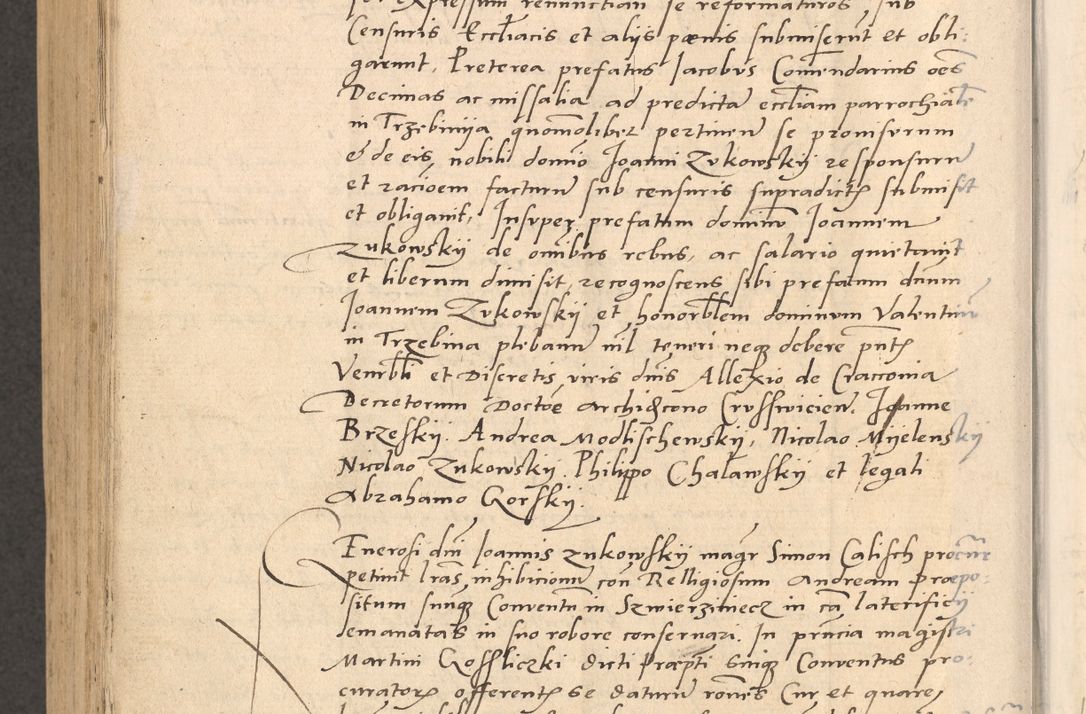 expressum renunctiari se reformaturos sub
Censuris Eccl̄iacis et alijs pœnis submiserūt et obli-
garunt, Preterea prefatus Jacobus Com̄endarius oēs
Decimas ac missalia ad predictā eccl̄iam parrochialē
in Trzebinija quom̄olibet pertineñ se promiserum
& de eis, nobili domīo Joanni Zukowskij responsurū
et racioēm facturū sub censuris supradictꝭ submisit
et obligauit, Insuper prefatum dominū Joannem
Zukowskij de om̄ibus rebus, ac salario quietauit
et liberum dimisit, recognoscens sibi prefatum dn̄um
Joannem Zukowskij et honorb̄lem dominum Valentinū
in Trzebina plebanū nil teneri neqꝫ debere pn̄tꝭ
Venrb̄li et Discretis viris dn̄is Allexio de Cracouia
Decretorum Doctoē archidꝫcono Crusswiciēn. Joanne
Brzeskij. Andrea Modlischewskij, Nicolao Mijelenskij
Nicolao Zukowskij. Philippo Chalawskij et legali
Abrahamo Gorskij.
GEnerosi dn̄i Joannis Zukowskij magr̄ Simon Calisch procur̄
petiuit lr̄as inhibicionū con̄ Relligiosum Andream præpo-
situm suūqꝫ Conventū in Szwierziniecz in cā laterificij
emanatas in suo robore conseruari. In pn̄cia magistri
Martini Gossliczki dicti Præpt̄i suiqꝫ Conventus pro-
curatorꝭ offerentꝭ se daturū rōnes Cur et quare,